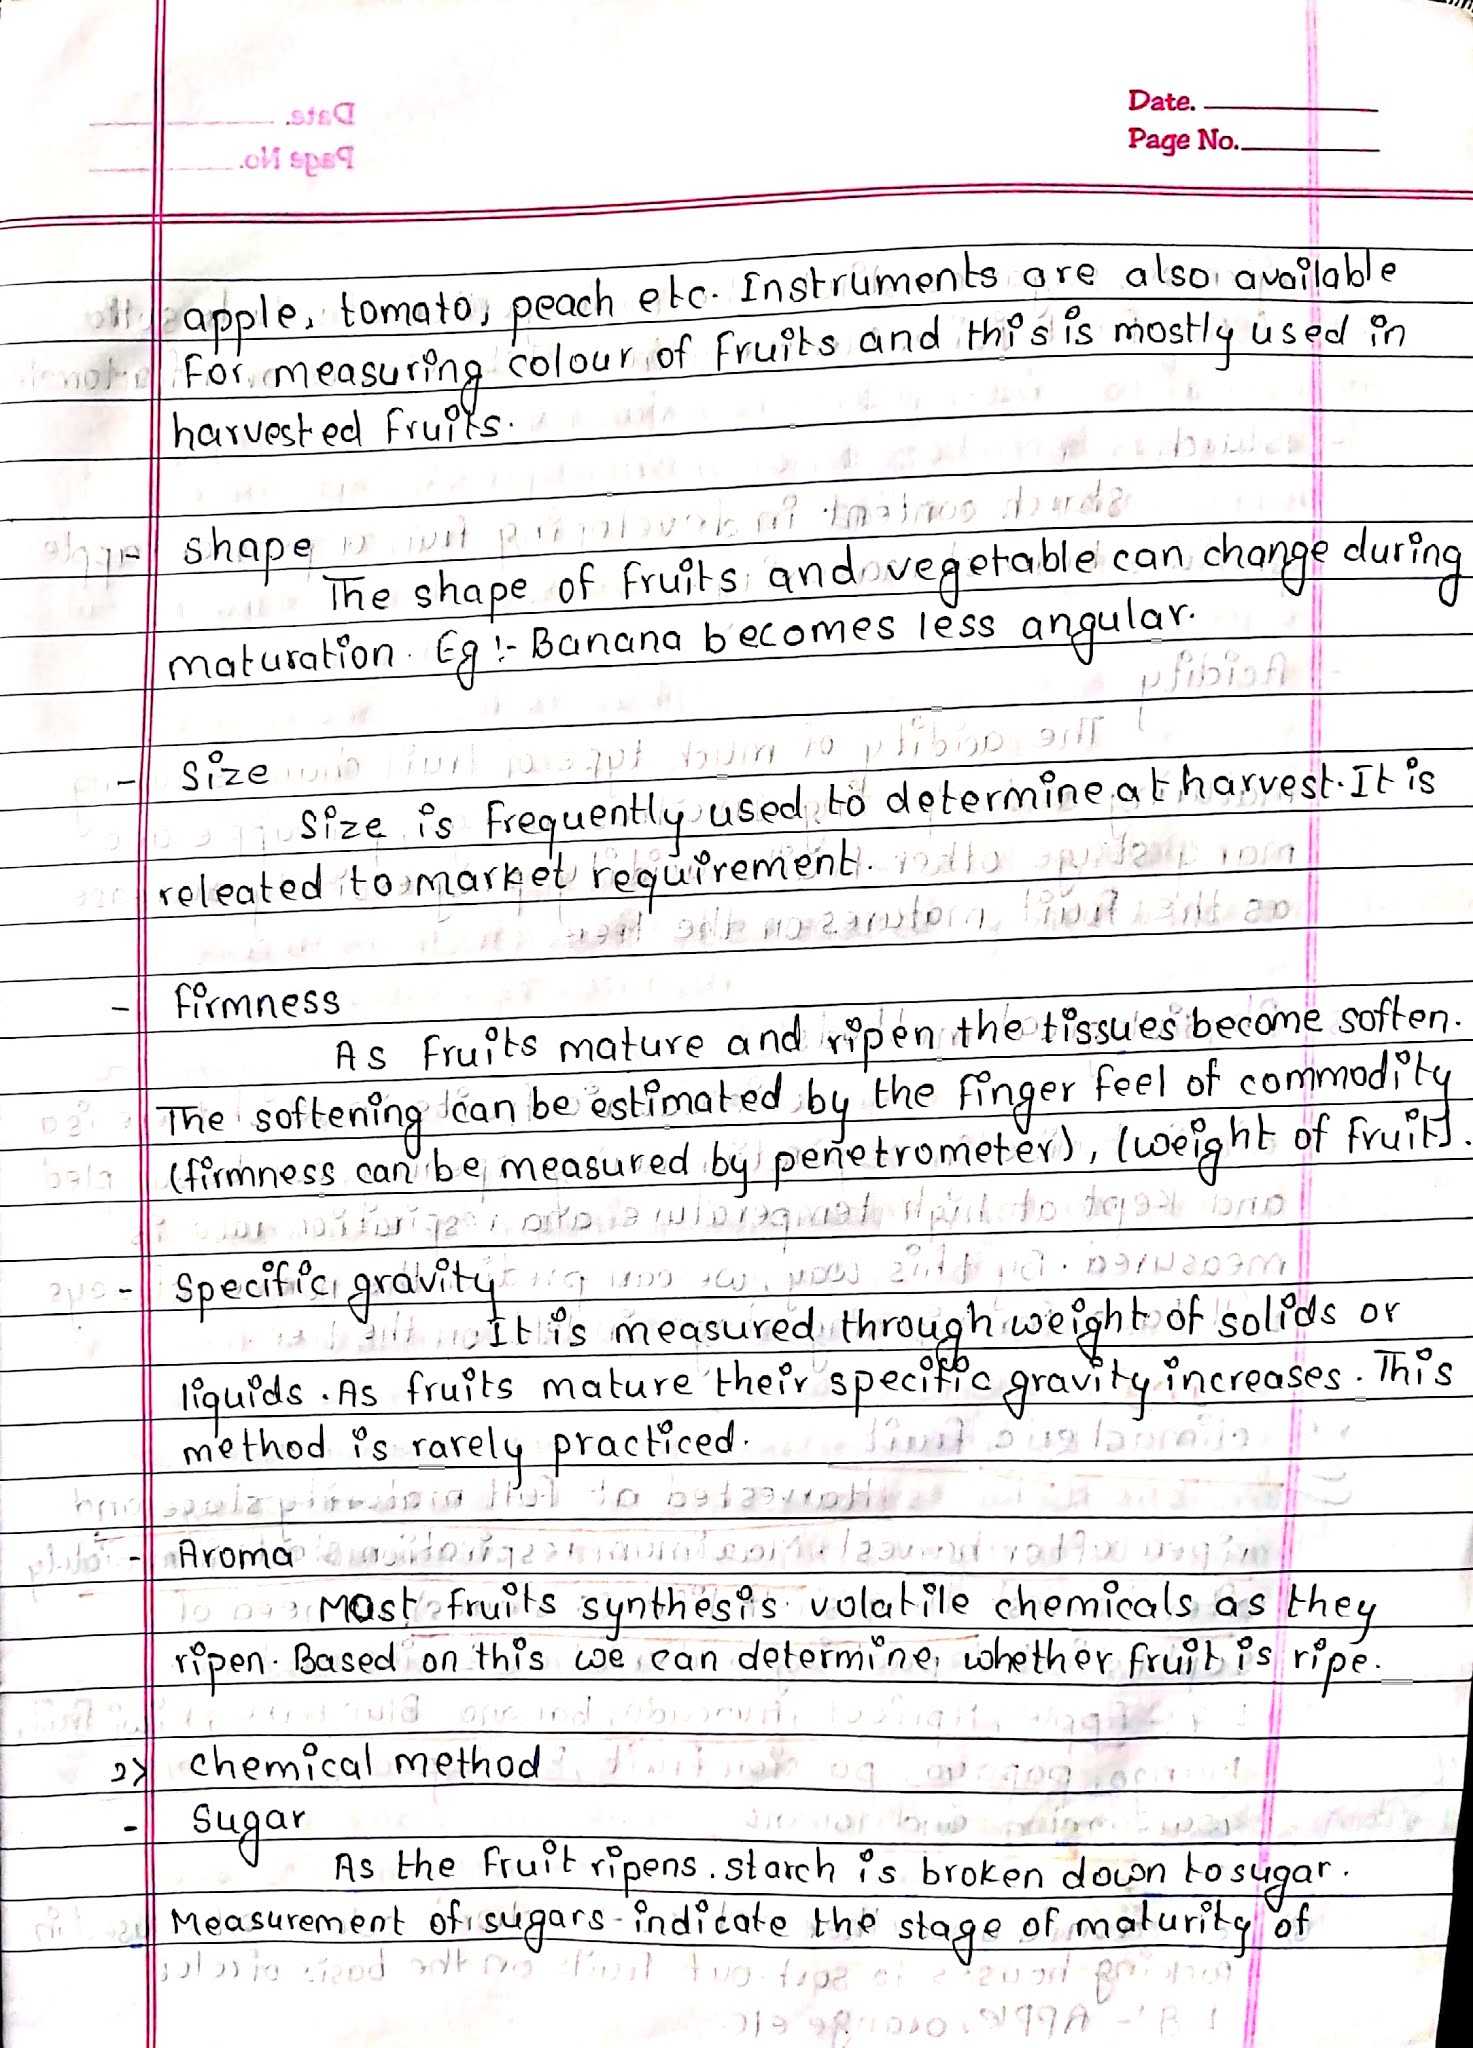 Date.
Page No.
apple, tomato, peach etc. Instruments are also available
for measuring colour of fruits and this is mostly used in
harvested fruits.
- shape
The shape of fruits and vegetable can change during
maturation. Eg :- Banana becomes less angular.
- Size
Size is frequently used to determine at harvest. It is
releated to market requirement.
- firmness
As fruits mature and ripen the tissues become soften.
The softening can be estimated by the finger feel of commodity
(firmness can be measured by penetrometer), (weight of fruit).
- Specific gravity
It is measured through weight of solids or
liquids. As fruits mature their specific gravity increases. This
method is rarely practiced.
- Aroma
Most fruits synthesis volatile chemicals as they
ripen. Based on this we can determine whether fruit is ripe.
2> chemical method
- Sugar
As the fruit ripens. starch is broken down to sugar.
Measurement of sugars indicate the stage of maturity of